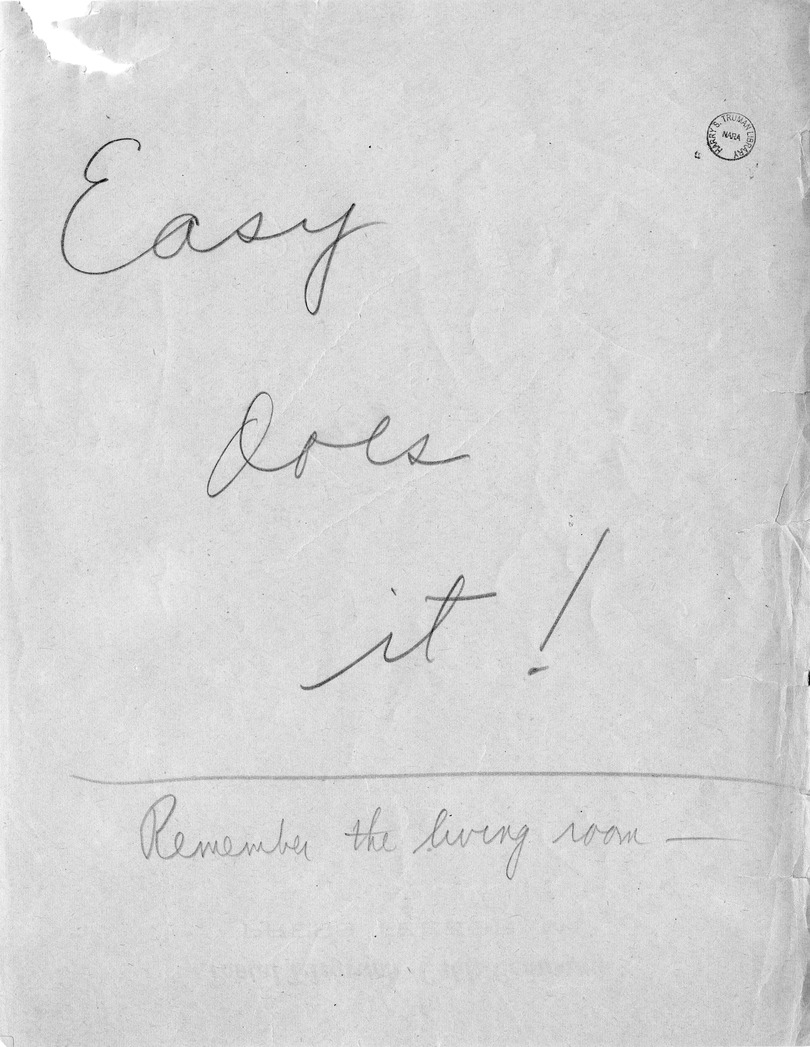 HARRY S. TRUMAN LIBRARY
NARA
Easy
does
it!
Remember the living room —